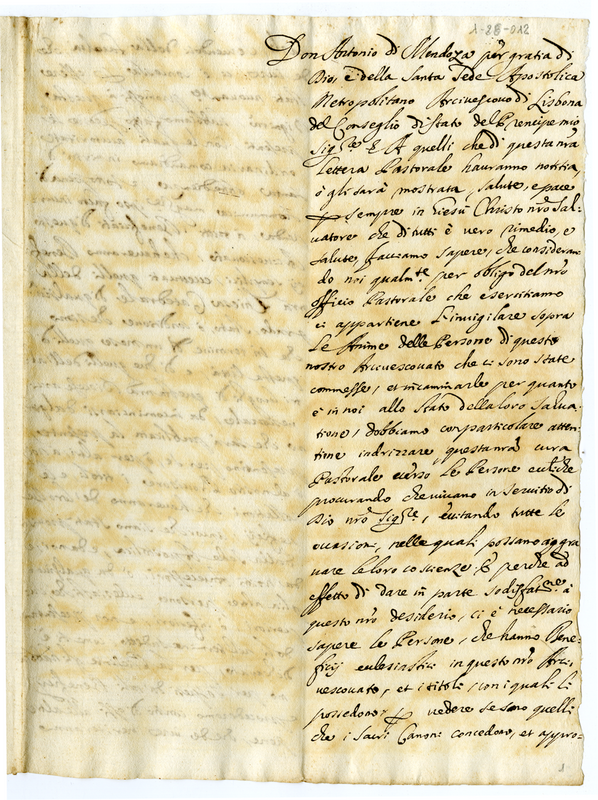 1-28-012
Don Antonio di Mendoza per gratia di
Dio, è della Santa Sede Apostolica
Metropolitano Arcivescovo di Lisbona
del Conseglio di Stato del Prencipe mio
Sig.re E A quelli che di questa nra
lettera Pastorale hauranno notitia,
ò gli sarà mostrata, salute, e pace
sempre in Giesù Christo nro Sal-
uatore che di tutti è vero rimedio, e
salute, facciamo sapere, che consideran
do noi qualm.te per obligo del nro
officio Pastorale che esercitiamo
ci appartiene l'inuigilare sopra
le Anime delle Persone di questo
nostro Arciuescouato che ci sono state
commesse, et incaminarle per quanto
è in noi allo stato della loro salua-
tione, dobbiamo con particolare atten-
tione indrizzare questa nra cura
Pastorale verso le Persone eccl.che
procurando che viuano in seruitio di
Dio nro Sig.re, euitando tutte le
occasioni, nelle quali possano aggra
uare le loro coscienze. E perche ad
effetto di dare in parte sodisfat.ne à
questo nro desiderio, ci è necessario
sapere le Persone, che hanno Bene-
ficij eclesiastici in questo nro Arci-
uescouato, et i titoli, con i quali li
possedono, vedere se sono quelli
che i sacri Canoni concedono, et appro-